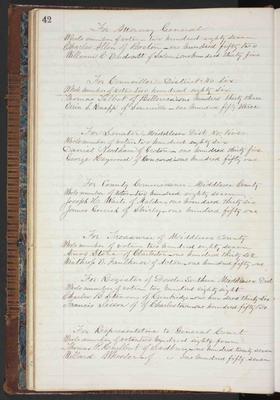 42
For Attorney General
Whole number of votes two hundred eighty seven
Charles Allen of Boston one hundred fifty two
William C. Endicott of Salem one hundred thirty five
For Councillor District No Six
Whole number of votes two hundred eighty six
Thomas Talbot of Billerica one hundred thirty three
one hundred fifty three
For Senator Middlesex Dist. No. Five
Whole number of votes two hundred eighty six
Daniel Needham of Groton one hundred thirty five
George Heywood of Concord one hundred fifty one
For County Commissioner Middlesex County
Whole number of votes two hundred eighty seven
Joseph H. Waitt of Malden one hundred thirty six
James of Shirley one hundred fifty one
For Treasurer of Middlesex County
Whole number of votes two hundred eighty seven
Amos Stone of Charlestown one hundred thirty six
Winthrop E. Faulkner of Acton one hundred fifty one
For Register of Deeds Southern Middlesex Dist
Whole number of votes two hundred eighty eight
Charles B. Stevens of Cambridge one hundred thirty six
Francis of Charlestown one hundred fifty two
For Representative to General Court
Whole number of votes two hundred eighty four
Thomas P. Hurlbut of Sudbury one hundred twenty seven
Willard of one hundred fifty seven